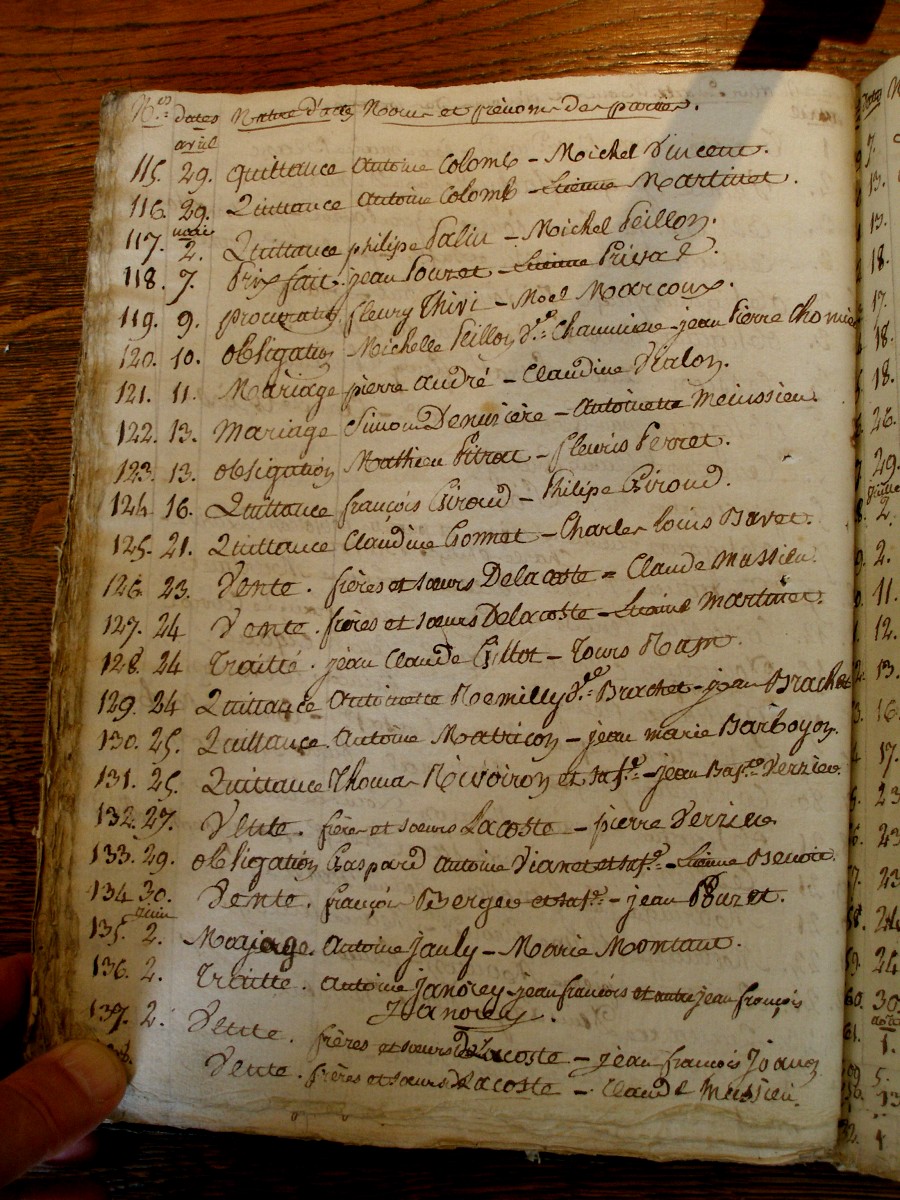 N.os dates Nature d'actes Noms et prénoms des parties.
avril
115. 29. quittance Antoine Colomb - Michel Vincent.
116. 29. Quittance Antoine Colomb - Etienne Martinet.
mai
117. 2. Quittance philipe Palin - Michel Peillon.
118. 7. Prix fait. jean Pouret - Etienne Privas
119. 9. procuration fleury Thivi - Noel Marcoux.
120. 10. obligation Michelle Peillon Chaumiere - jean Pierre Chomier
121. 11. Mariage pierre andré - Claudine Vialon.
122. 13. Mariage Simon Denuzière - Antoinette Meinssieu
123. 13. obligation Mathieu Pitrat - fleuris Perret.
124. 16. Quittance françois Giroud - Philipe Giroud.
125. 21. Quittance Claudine Gonnet - Charles louis Bavet.
126. 23. Vente. frères et sœurs Delacoste - Claude Mussieu.
127. 24 Vente. frères et sœurs Delacoste - Etienne Martinet.
128. 24 Traitté. jean Claude Gillot -
129. 24 Quittance Antoinette Remilly v.ve Brachet - jean Brachet
130. 25. Quittance. Antoine Matricon - jean marie Barboyon.
131. 25. Quittance Thomas Rivoiron et sa f.e - jean Bap.te Verzieu
132. 27. Vente. frères et sœurs Lacoste - pierre Verzieu
133. 29. obligation Gaspard antoine Vianet et sa f.e - Etienne Benoit.
134 30. Vente. françois Berger et sa f.e - jean Pouret.
juin
135. 2. Mariage. Antoine jauly - Marie Montant.
136. 2. Traitté. antoine janorey - jean françois et autre jean françois
Janorey.
137. 2. Vente. frères et sœurs Delacoste - jean françois Joanon
Vente. frères et sœurs Delacoste - Claude Mussieu.